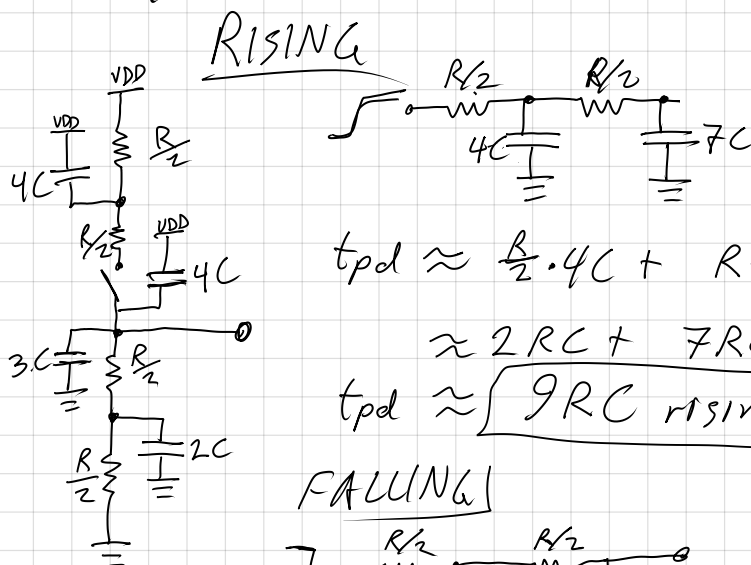 RISING
VDD
R/2
VDD
4C
R/2
VDD
4C
3C
R/2
2C
R/2
R/2
R/2
4C
7C
tpd ≈ R/2 · 4C + R
≈ 2RC + 7R
tpd ≈ 9RC
FALLING
R/2
R/2